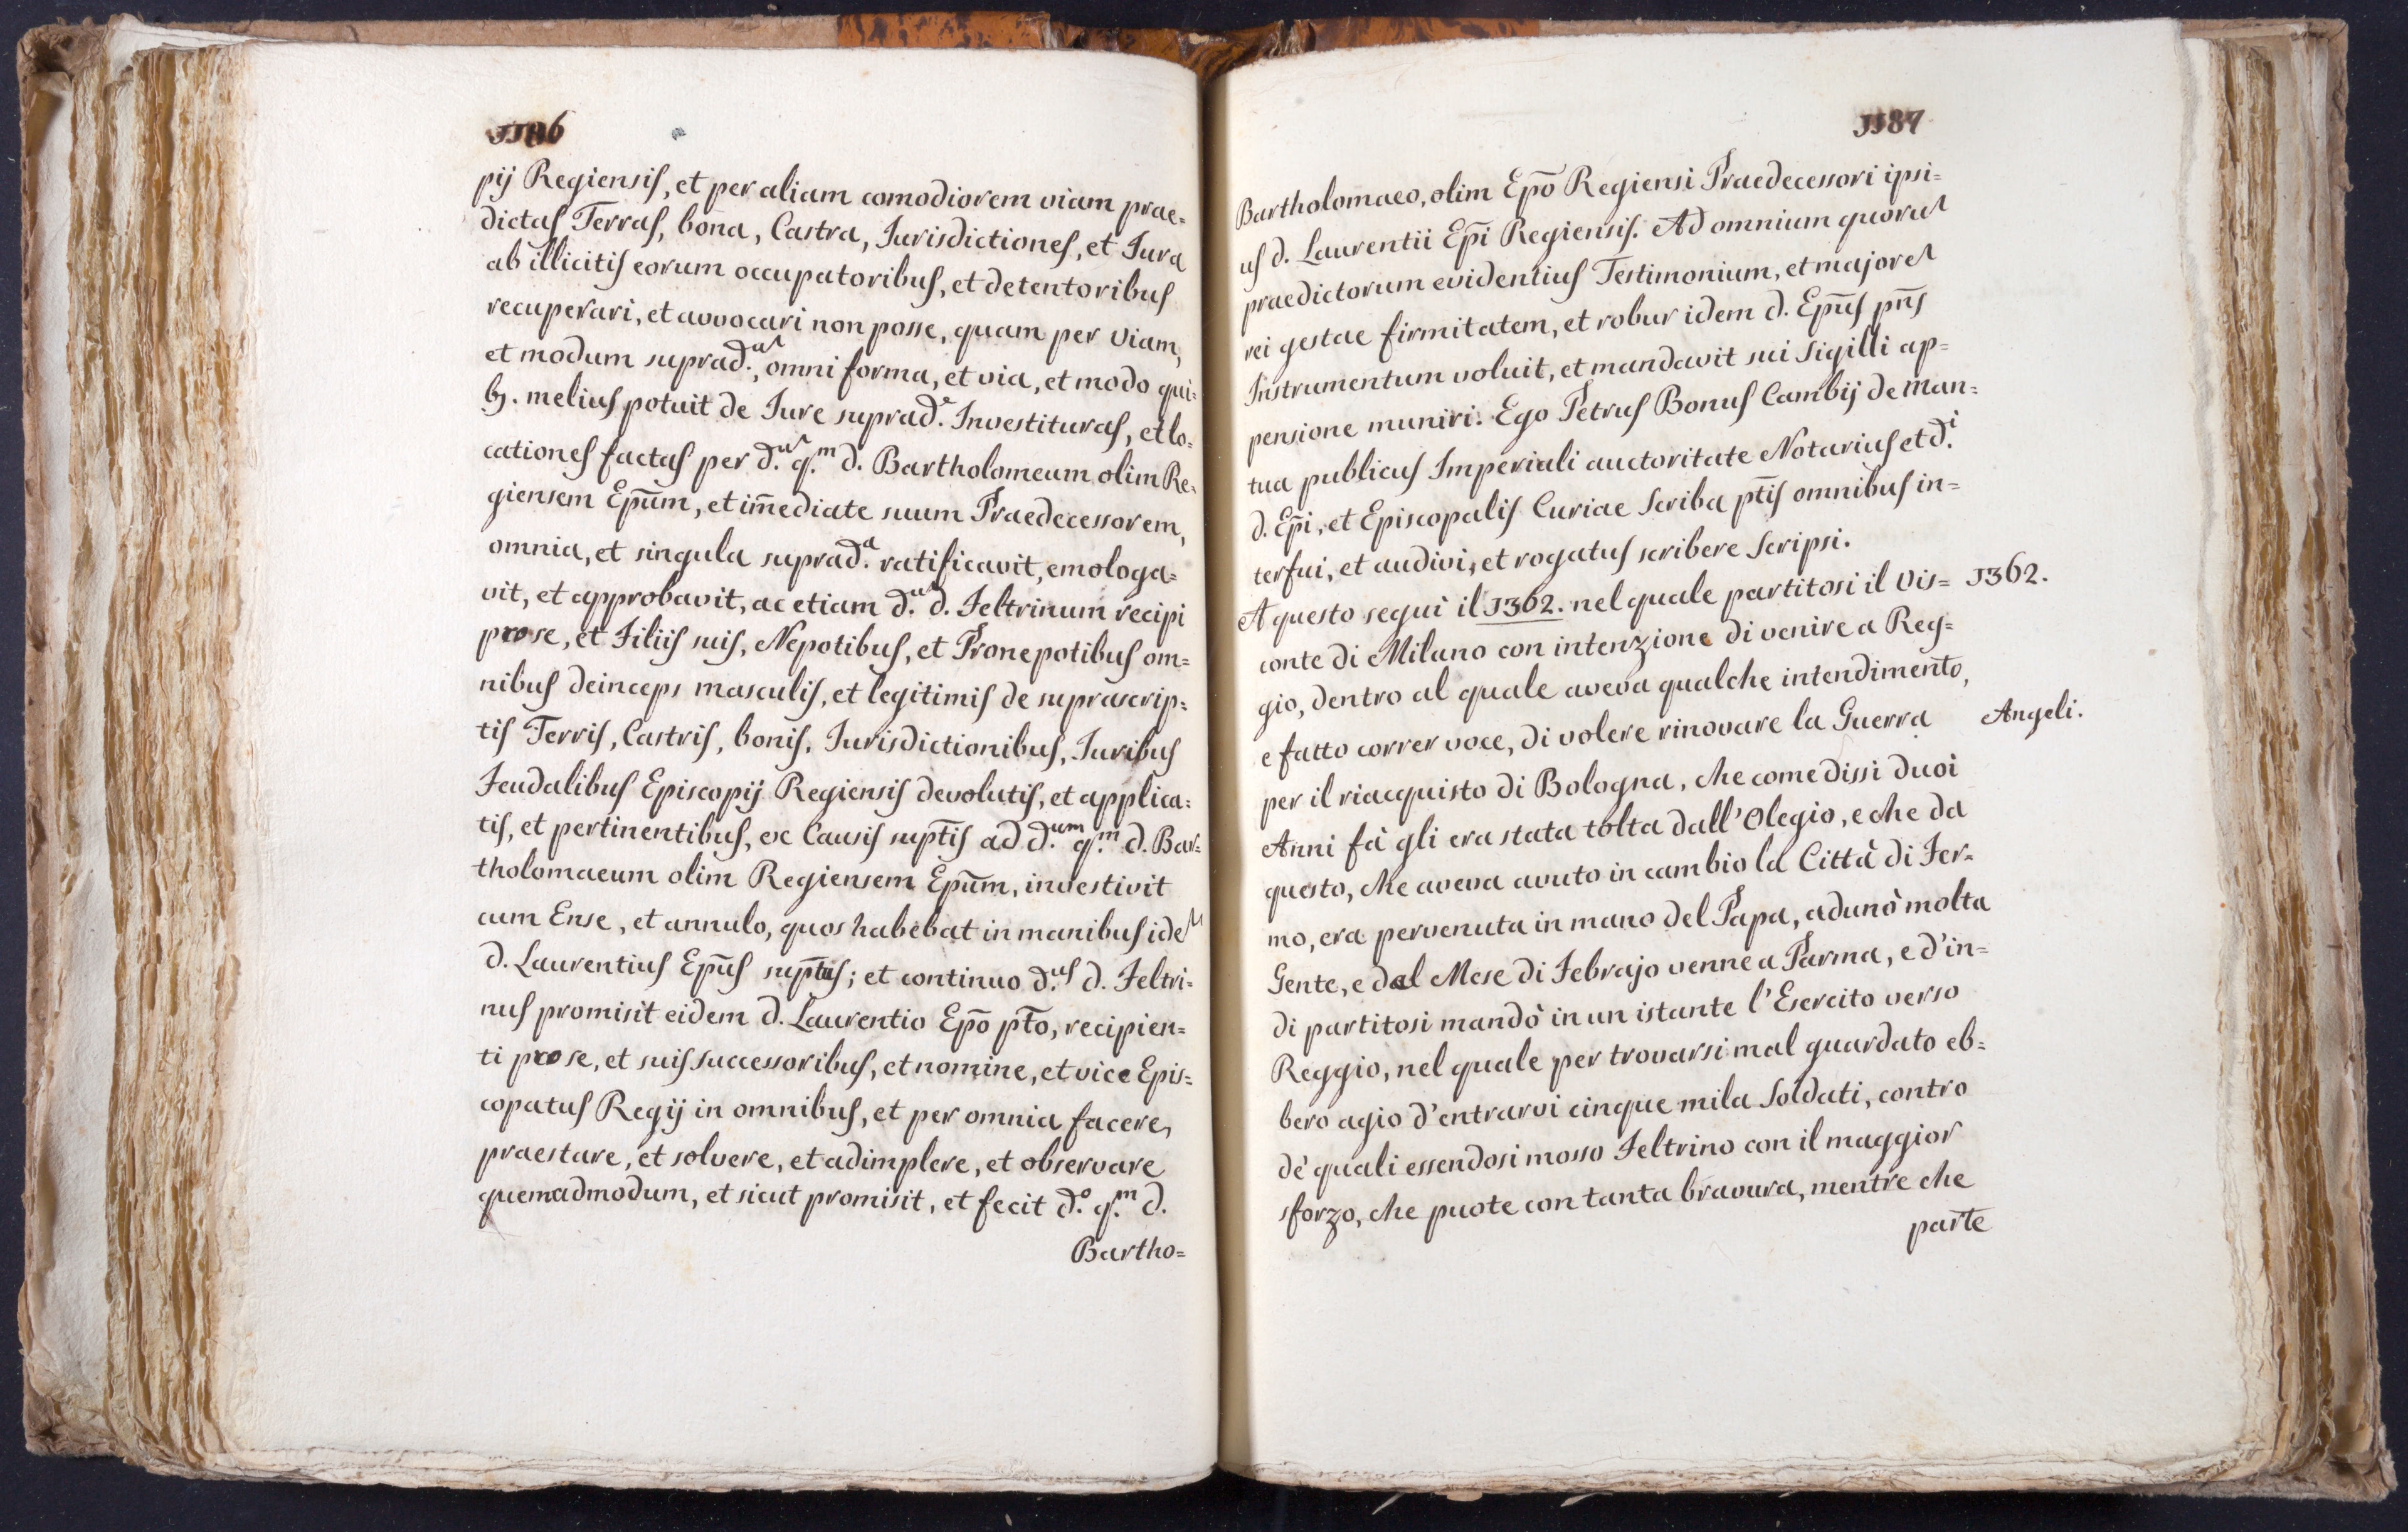 1186
pij Regiensis, et per aliam comodiorem viam prae=
dictas Terras, bona, Castra, Jurisdictiones, et Jura
ab illicitis eorum occupatoribus, et detentoribus
recuperari, et avvocari non posse, quam per viam,
et modum suprad., omni forma, et via, et modo qui=
bq. melius potuit de Jure suprad.ᵉ Investituras, et lo=
cationes factas per d. q.ᵐ d. Bartholomeum olim Re=
giensem Epūm, et im̄ediate suum Praedecessorem,
omnia, et singula suprad.ᵃ ratificavit, emologa=
vit, et approbavit, ac etiam d. d. Feltrinum recipi
pro se, et Filiis suis, Nepotibus, et Pronepotibus om=
nibus deinceps masculis, et legitimis de suprascrip=
tis Terris, Castris, bonis, Jurisdictionibus, Juribus
Feudalibus Episcopij Regiensis devolutis, et applica=
tis, et pertinentibus, ex Causis sup̄tis ad d.ᵘᵐ q.ᵐ d. Bar=
tholomaeum olim Regiensem Epūm, investivit
cum Ense, et annulo, quos habebat in manibus ideM
d. Laurentius Epūs sup̄tus; et continuo d.ᵘˢ d. Feltri=
nus promisit eidem d. Laurentio Epō p̄to, recipien=
ti pro se, et suis successoribus, et nomine, et vice Epis=
copatus Regij in omnibus, et per omnia facere,
praestare, et solvere, et adimplere, et observare
quemadmodum, et sicut promisit, et fecit d.ᵒ q.ᵐ d.
Bartho=
1187
Bartholomaeo, olim Epō Regiensi Praedecessori ipsi=
us d. Laurentii Epī Regiensis. Ad omnium quoruM
praedictorum evidentius Testimonium, et majoreM
rei gestae firmitatem, et robur idem d. Epūs pn̄s
Instrumentum voluit, et mandavit sui Sigilli ap=
pensione muniri. Ego Petrus Bonus Cambij de Man=
tua publicus Imperiali auctoritate Notarius et d.ⁱ
d. Epī, et Episcopalis Curiae Scriba p̄tis omnibus in=
terfui, et audivi, et rogatus scribere scripsi.
A questo seguì il 1362. nel quale partitosi il Vis= 1362.
conte di Milano con intenzione di venire a Reg=
gio, dentro al quale aveva qualche intendimento,
e fatto correr voce, di volere rinovare la Guerra Angeli.
per il riacquisto di Bologna, che come dissi duoi
Anni fà gli era stata tolta dall'Olegio, e che da
questo, che aveva avuto in cambio la Città di Fer=
mo, era pervenuta in mano del Papa, adunò molta
Gente, e dal Mese di Febrajo venne a Parma, e d'in=
di partitosi mandò in un istante l'Esercito verso
Reggio, nel quale per trovarsi mal guardato eb=
bero agio d'entrarvi cinque mila Soldati, contro
de' quali essendosi mosso Feltrino con il maggior
sforzo, che puote con tanta bravura, mentre che
parte